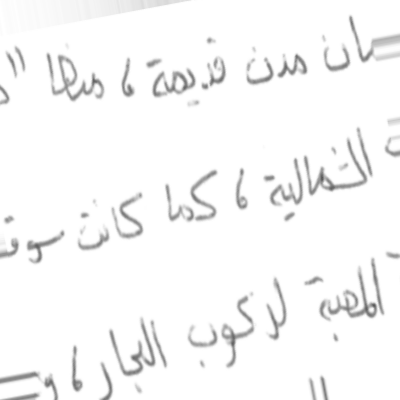 مدن قديمة ، منها "
الشمالية ، كما كانت سوق
المحبة لركوب البحار ، و